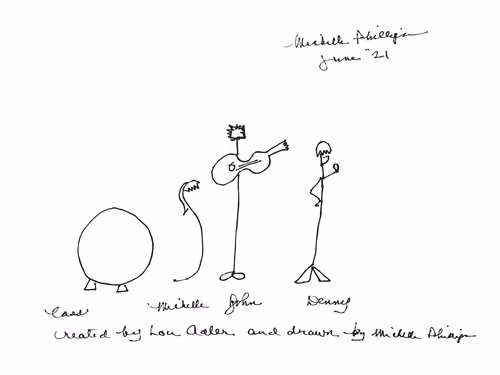 Michelle Phillips
June "21
Cass Michelle John Denny
Created by Lou Adler and drawn by Michelle Phillips